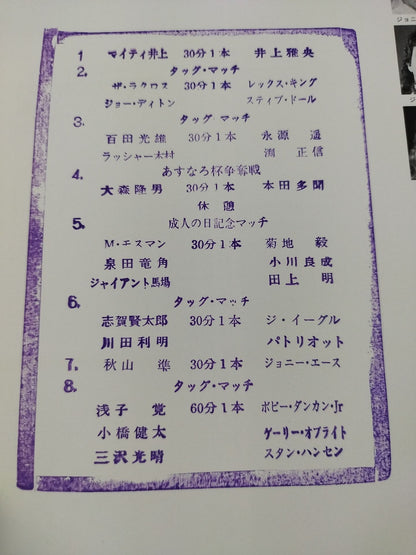 1 マイティ井上 30分1本 井上雅央
2. タッグ・マッチ
ザ・ラクロス 30分1本 レックス・キング
ジョー・ディトン スティブ・ドール
3. タッグ マッチ
百田光雄 30分1本 永源 遥
ラッシャー木村 渕 正信
4. あすなろ杯争奪戦
大森隆男 30分1本 本田多聞
休憩
5. 成人の日記念マッチ
M・エスマン 30分1本 菊地 毅
泉田竜角 小川良成
ジャイアント馬場 田上 明
6. タッグ・マッチ
志賀賢太郎 30分1本 ジ・イーグル
川田利明 パトリオット
7. 秋山 準 30分1本 ジョニー・エース
8. タッグ・マッチ
浅子 覚 60分1本 ボビー・ダンカン・Jr
小橋健太 ゲーリー・オブライト
三沢光晴 スタン・ハンセン
ジョニ